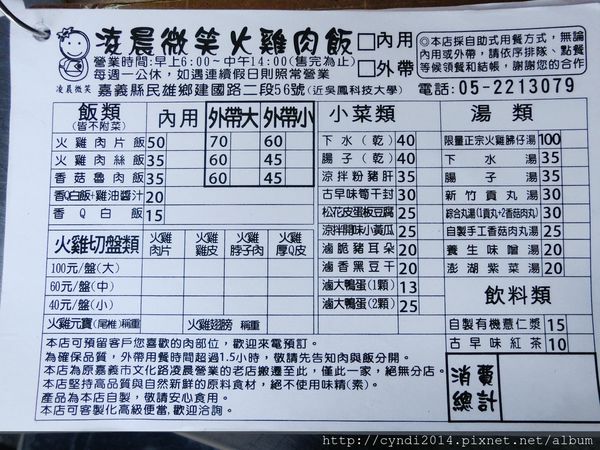 凌晨微笑火雞肉飯
□內用
□外帶
◎本店採自助式用餐方式，無論
內用或外帶，請依序排隊、點餐
等候領餐和結帳，謝謝您的合作
營業時間：早上6:00~中午14:00(售完為止)
每週一公休，如遇連續假日則照常營業
凌晨微笑
嘉義縣民雄鄉建國路二段56號(近吳鳳科技大學)
電話：05-2213079
飯類 內用 外帶大 外帶小
(皆不附菜)
火雞肉片飯 50 70 60
火雞肉絲飯 35 60 45
香菇魯肉飯 35 60 45
香Q白飯+雞油醬汁 20
香Q白飯 15
火雞切盤類 火雞肉片 火雞雞皮 火雞脖子肉 火雞厚Q皮
100元/盤(大)
60元/盤(中)
40元/盤(小)
火雞元寶(尾椎)稱重 火雞翅膀 稱重
小菜類
下水(乾) 40
腸子(乾) 40
涼拌粉豬肝 35
古早味筍干封 30
松花皮蛋板豆腐 25
涼拌開味小黃瓜 25
滷脆豬耳朵 20
滷香黑豆干 20
滷大鴨蛋(1顆) 13
滷大鴨蛋(2顆) 25
湯類
限量正宗火雞胇仔湯 100
下水湯 35
腸子湯 35
新竹貢丸湯 30
綜合丸湯(1貢丸+2香菇肉丸) 30
自製手工香菇肉丸湯 25
養生味噌湯 20
澎湖紫菜湯 20
飲料類
自製有機薏仁漿 15
古早味紅茶 10
消費總計
本店可預留客戶您喜歡的肉部位，歡迎來電預訂。
為確保品質，外帶用餐時間超過1.5小時，敬請先告知肉與飯分開。
本店為原嘉義市文化路凌晨營業的老店搬遷至此，僅此一家，絕無分店。
本店堅持高品質與自然新鮮的原料食材，絕不使用味精(素)。
產品為本店自製，敬請安心食用。
本店可客製化高級便當，歡迎洽詢。
http://cyndi2014.pixnet.net/album